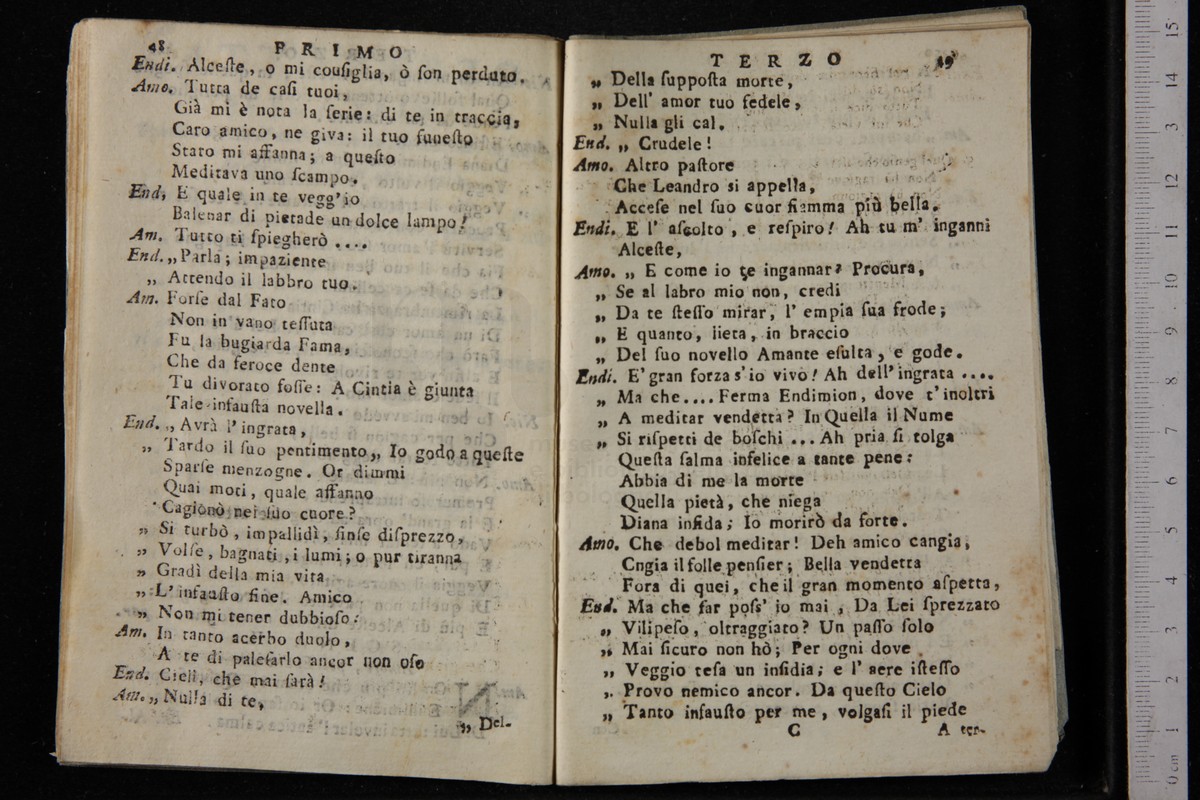 48
PRIMO
Endi. Alceſte, o mi couſiglia, ò ſon perduto.
Amo. Tutta de caſi tuoi,
Già mi è nota la ſerie: di te in traccia,
Caro amico, ne giva: il tuo funeſto
Stato mi affanna; a queſto
Meditava uno ſcampo.
End, E quale in te vegg'io
Balenar di pietade un dolce lampo!
Am. Tutto ti ſpiegherò ....
End. „ Parla; impaziente
„ Attendo il labbro tuo.
Am. Forſe dal Fato
Non in vano teſſuta
Fu la bugiarda Fama,
Che da feroce dente
Tu divorato foſſe: A Cintia è giunta
Tale infauſta novella.
End. „ Avrà l'ingrata,
„ Tardo il ſuo pentimento„ Io godo a queſte
Sparſe menzogne. Or dimmi
Quai moti, quale affanno
Cagionò nel ſuo cuore?
„ Si turbò, impallidì, finſe diſprezzo,
„ Volſe, bagnati, i lumi; o pur tiranna
„ Gradì della mia vita
„ L'infauſto fine. Amico
„ Non mi tener dubbioſo.
Am. In tanto acerbo duolo,
A te di paleſarlo ancor non oſo
End. Cieli, che mai ſarà!
Am. „ Nulla di te,
„ Del-
TERZO
49
„ Della ſuppoſta morte,
„ Dell' amor tuo fedele,
„ Nulla gli cal.
End. „ Crudele!
Amo. Altro paſtore
Che Leandro si appella,
Acceſe nel ſuo cuor fiamma più bella.
Endi. E l' aſcolto, e reſpiro! Ah tu m' inganni
Alceſte,
Amo. „ E come io te ingannar? Procura,
„ Se al labro mio non, credi
„ Da te ſteſſo mirar, l' empia ſua frode;
„ E quanto, lieta, in braccio
„ Del ſuo novello Amante eſulta, e gode.
Endi. E' gran forza s'io vivo! Ah dell'ingrata ....
„ Ma che.... Ferma Endimion, dove t'inoltri
„ A meditar vendetta? In Quella il Nume
„ Si riſpetti de boſchi ... Ah pria ſi tolga
Queſta ſalma infelice a tante pene:
Abbia di me la morte
Quella pietà, che niega
Diana infida; Io morirò da forte.
Amo. Che debol meditar! Deh amico cangia,
Cngia il folle penſier; Bella vendetta
Fora di quei, che il gran momento aſpetta,
End. Ma che far poſs' io mai, Da Lei ſprezzato
„ Vilipeſo, oltraggiato? Un paſſo ſolo
„ Mai ſicuro non hò; Per ogni dove
„ Veggio teſa un inſidia; e l' aere iſteſſo
„ Provo nemico ancor. Da queſto Cielo
„ Tanto infauſto per me, volgaſi il piede
C
A ter-
15
14
13
12
11
10
9
8
7
6
5
4
3
2
1
0 cm